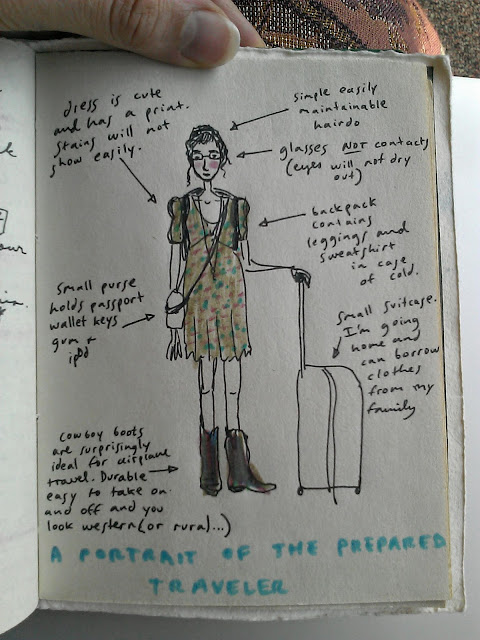 dress is cute
and has a print.
Stains will not
show easily.
simple easily
maintainable
hairdo
glasses NOT contacts
(eyes will not dry
out)
backpack
contains
leggings and
sweatshirt
in case
of cold.
small purse
holds passport
wallet keys
gum +
ipod
small suitcase.
I'm going
home and
can borrow
clothes
from my
family
cowboy boots
are surprisingly
ideal for airplane
travel. Durable
easy to take on
and off and you
look western (or rural...)
A PORTRAIT OF THE PREPARED
TRAVELER